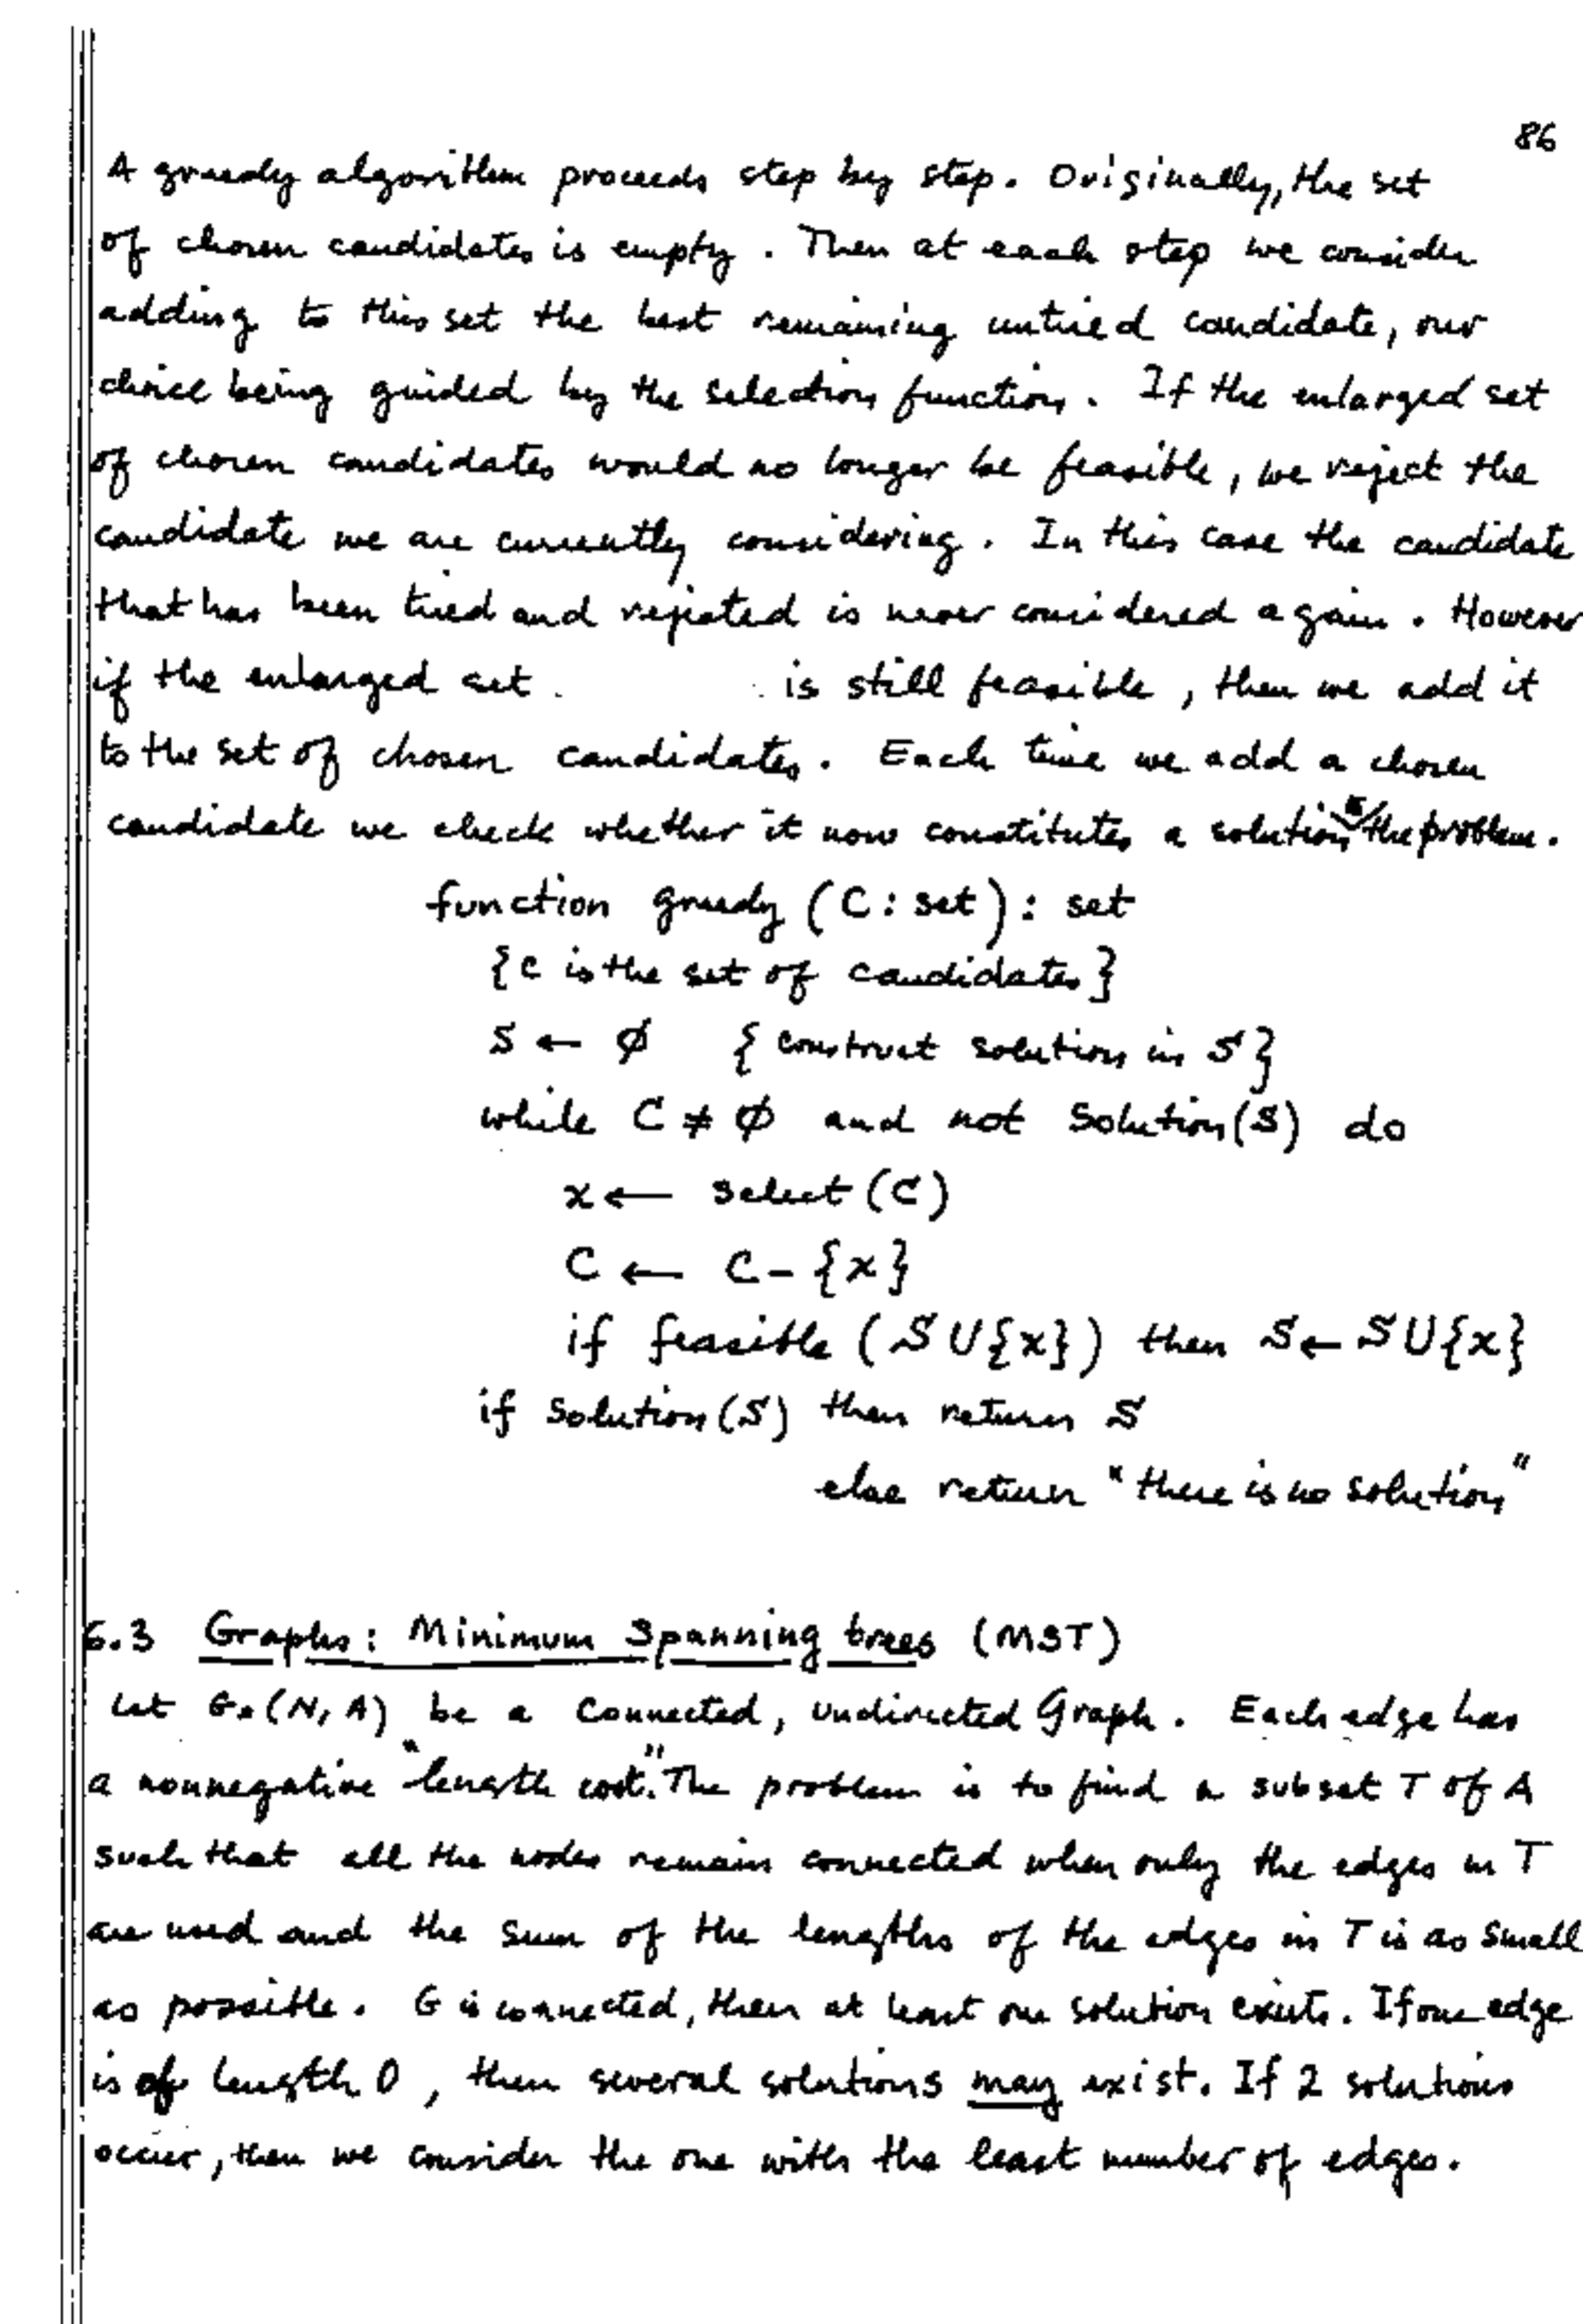 86
A greedy algorithm proceeds step by step. Originally, the set
of chosen candidates is empty. Then at each step we consider
adding to this set the best remaining untried candidate, our
choice being guided by the selection function. If the enlarged set
of chosen candidates would no longer be feasible, we reject the
candidate we are currently considering. In this case the candidate
that has been tried and rejected is never considered again. However
if the enlarged set is still feasible, then we add it
to the set of chosen candidates. Each time we add a chosen
candidate we check whether it now constitutes a solution to the problem.
function greedy (C: set): set
{C is the set of candidates}
S ← ∅ {construct solution in S}
while C ≠ ∅ and not Solution(S) do
x ← select(C)
C ← C - {x}
if feasible (S ∪ {x}) then S ← S ∪ {x}
if Solution(S) then return S
else return "there is no solution"
6.3 Graphs: Minimum Spanning trees (MST)
Let G=(N, A) be a Connected, undirected Graph. Each edge has
a nonnegative "length cost". The problem is to find a subset T of A
such that all the nodes remain connected when only the edges in T
are used and the sum of the lengths of the edges in T is as small
as possible. G is connected, then at least one solution exists. If one edge
is of length 0, then several solutions may exist. If 2 solutions
occur, then we consider the one with the least number of edges.